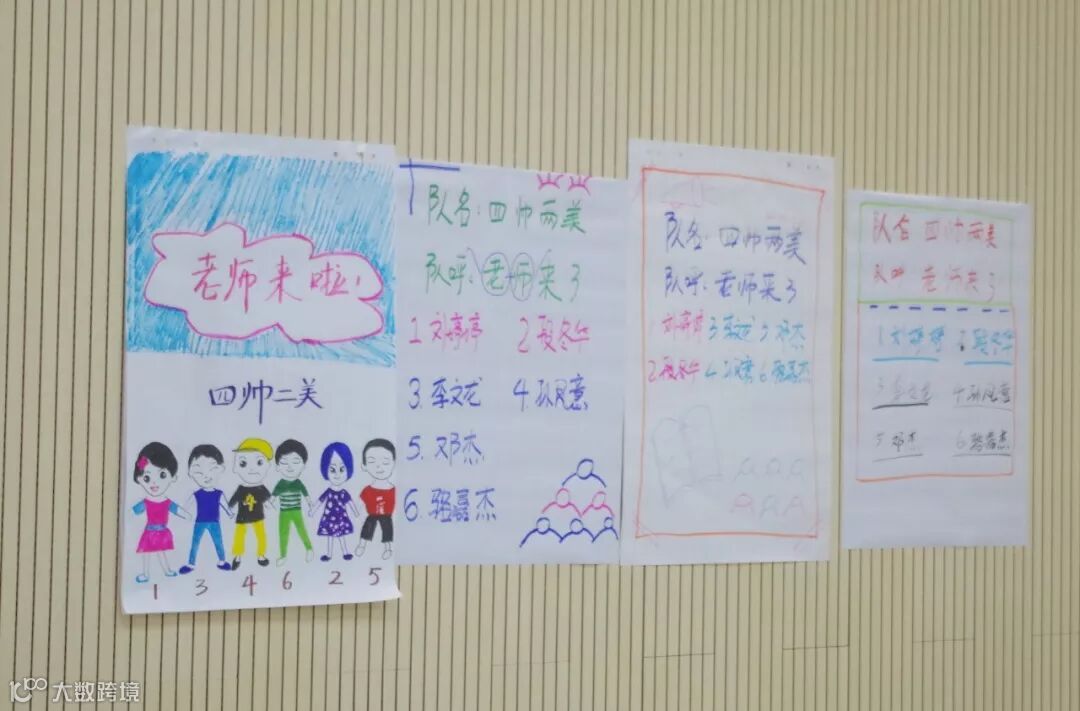 老师来啦!
四帅二美
4
1 3 4 6 2 5
队名:四帅两美
队呼:老师来了
1 刘婷婷 2 段冬华
3. 李文龙 4. 孙凤意
5. 邓杰
6. 骆嘉杰
队名:四帅两美
队呼:老师来了
1 刘婷婷 3 李文龙 5 邓杰
2 段冬华 4 6 骆嘉杰
队名 四帅两美
队呼 老师来了
1 刘婷婷 2 段冬华
3 李文龙 4 孙凤意
5 邓杰 6. 骆嘉杰
大数跨境